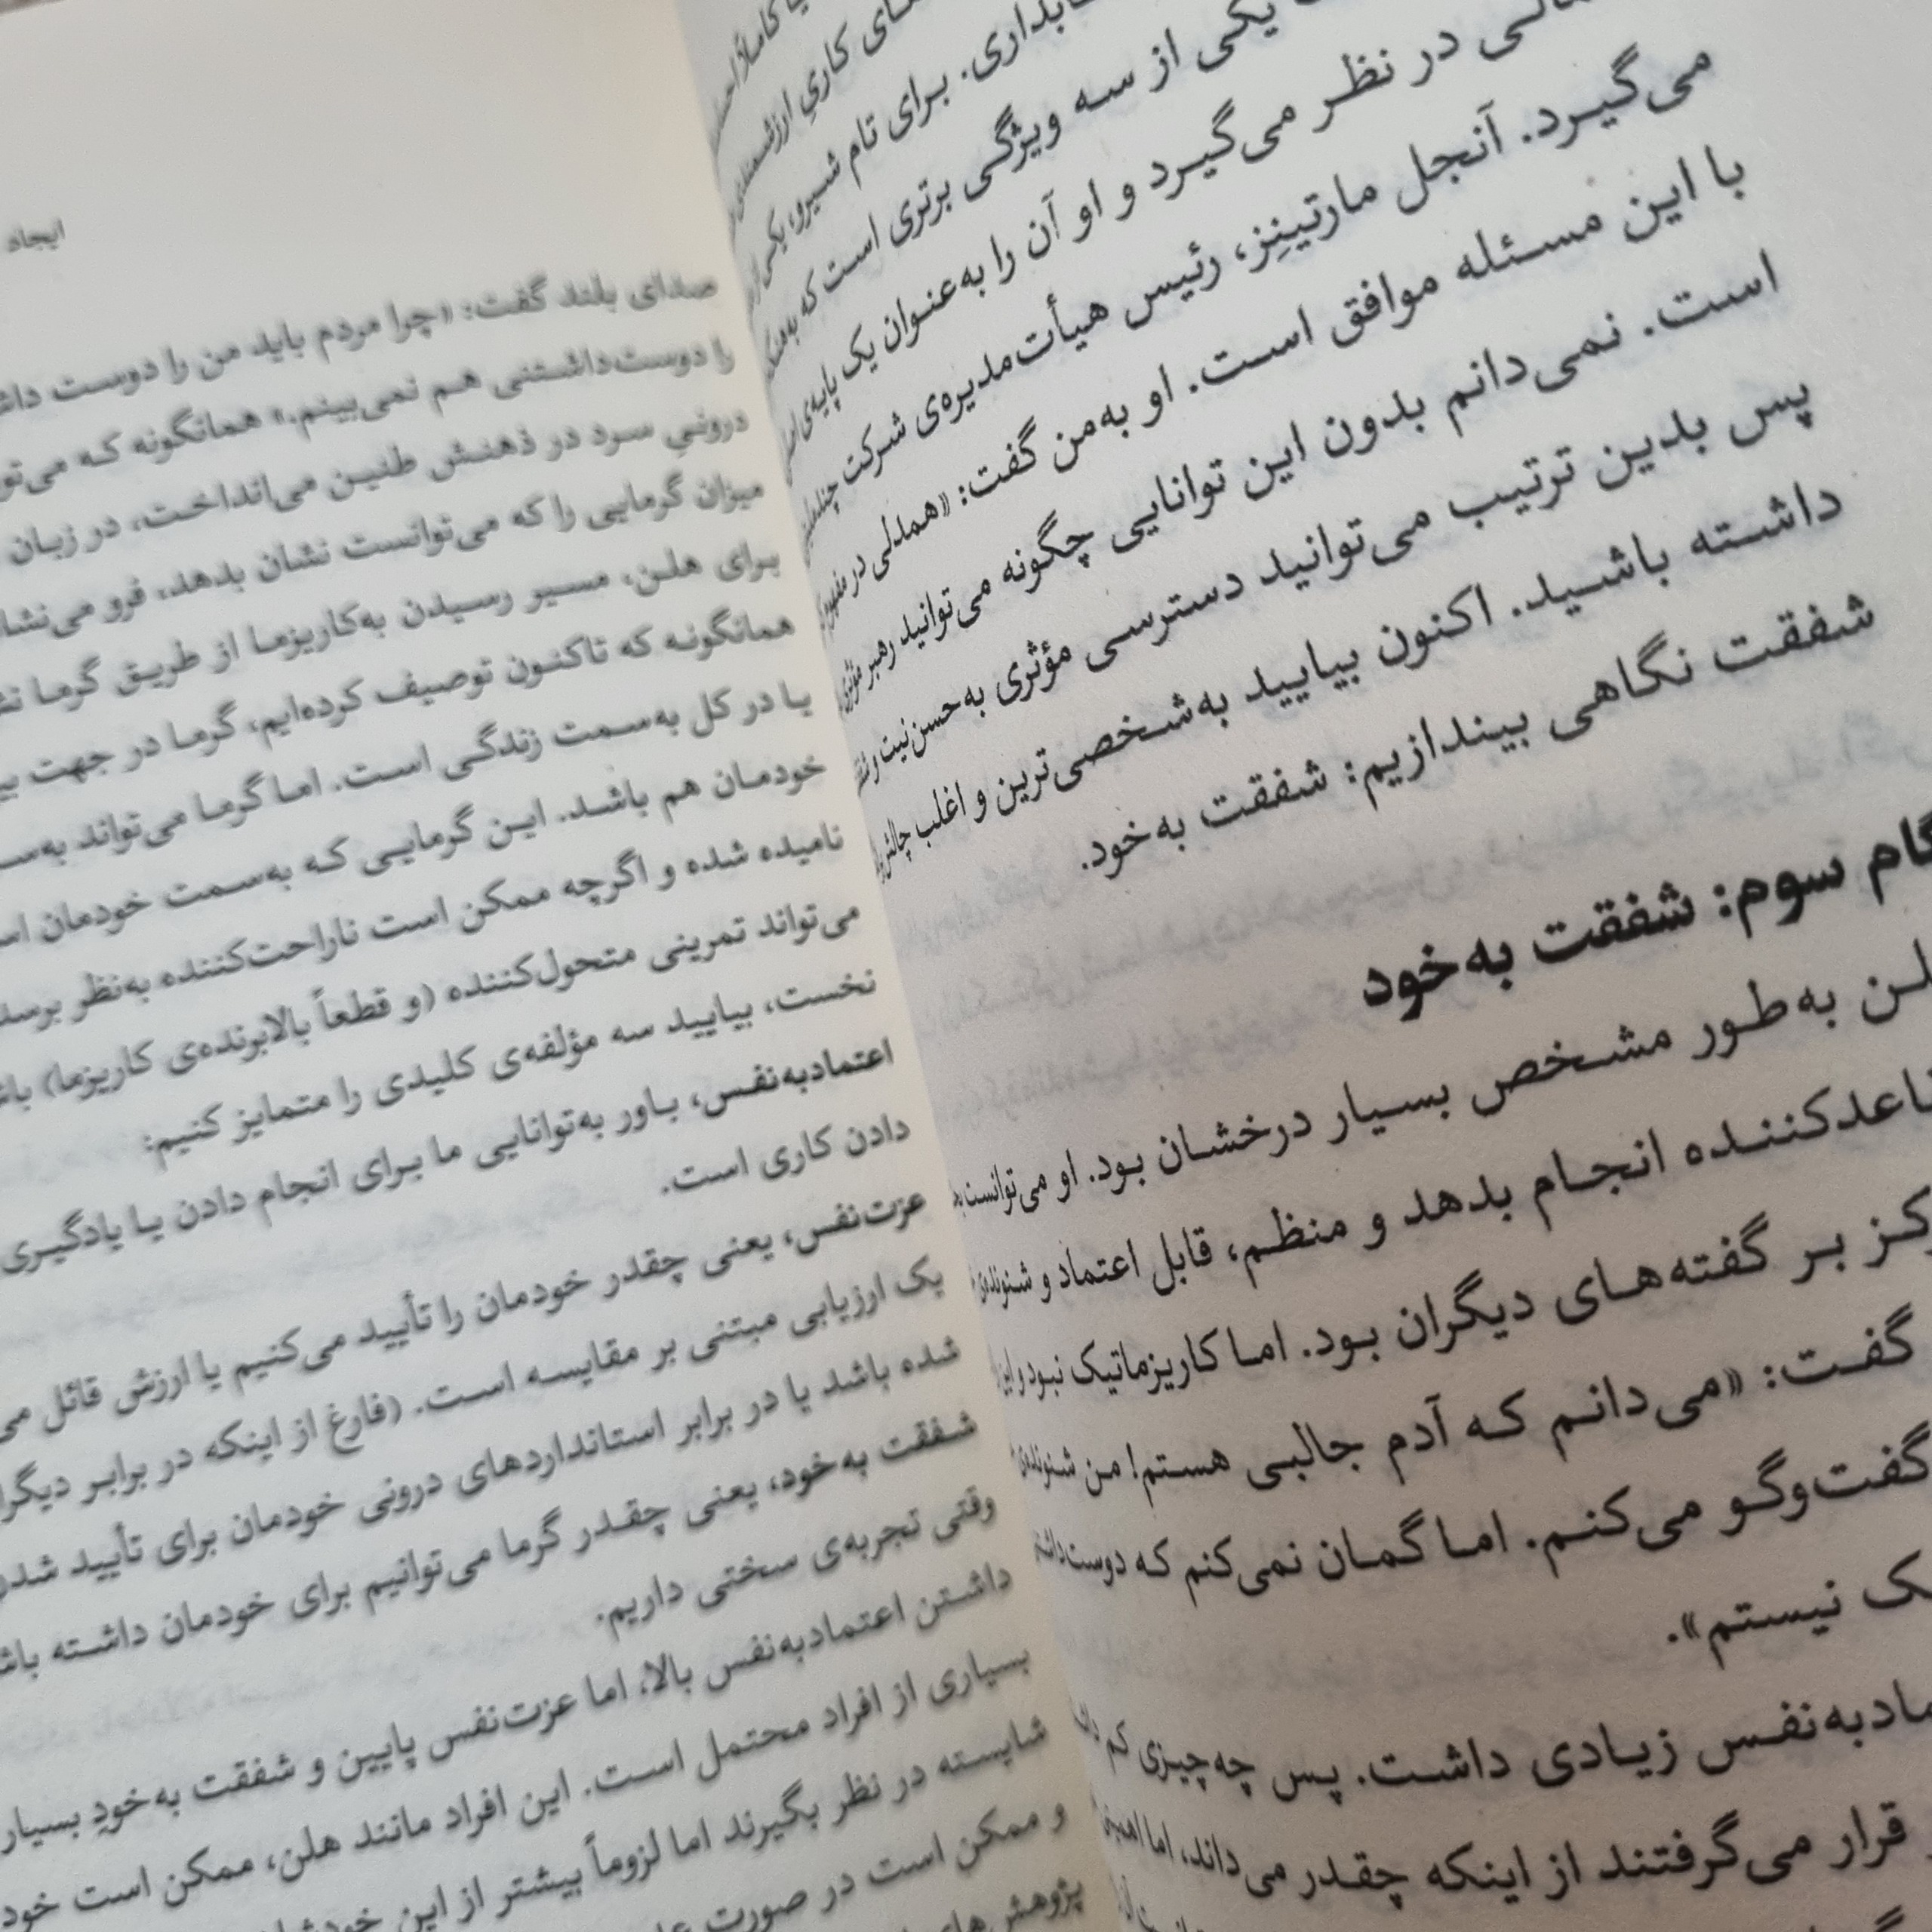 کاملاً
کاری ارزشمندی
برای تام شیرو، یکی از
یکی از سه ویژگی برتری است که به‌هنگام
در نظر می‌گیرد و او آن را به‌عنوان یک پایه‌ی
می‌گیرد. آنجل مارتینِز، رئیس هیأت‌مدیره‌ی شرکت
با این مسئله موافق است. او به‌من گفت: «همدلی در مفهوم
است. نمی‌دانم بدون این توانایی چگونه می‌توانید رهبر مؤثری
پس بدین ترتیب می‌توانید دسترسی مؤثری به‌حسن‌نیت و
داشته باشید. اکنون بیایید به‌شخصی‌ترین و اغلب
شفقت نگاهی بیندازیم: شفقت به‌خود.
گام سوم: شفقت به‌خود
به‌طور مشخص بسیار درخشان بود. او می‌توانست
انجام بدهد و منظم، قابل اعتماد و شنونده‌ی
بر گفته‌های دیگران بود. اما کاریزماتیک نبود و
گفت: «می‌دانم که آدم جالبی هستم! من شنونده‌ی
گفت‌وگو می‌کنم. اما گمان نمی‌کنم که
نیستم».
زیادی داشت. پس چه‌چیزی کم
قرار می‌گرفتند از اینکه چقدر می‌داند، اما
ایجاد
صدای بلند گفت: «چرا مردم باید من را دوست
را دوست‌داشتنی هم نمی‌بینم.» همانگونه که
درونیِ سرد در ذهنش طنین می‌انداخت، در زبان
میزان گرمایی را که می‌توانست نشان بدهد، فرو
برای هلن، مسیر رسیدن به‌کاریزما از طریق گرما
همانگونه که تاکنون توصیف کرده‌ایم، گرما در جهت
یا در کل به‌سمت زندگی است. اما گرما می‌تواند
خودمان هم باشد. این گرمایی که به‌سمت خودمان
نامیده شده و اگرچه ممکن است ناراحت‌کننده به‌نظر
می‌تواند تمرینی متحول‌کننده (و قطعاً بالابرنده‌ی کاریزما)
نخست، بیایید سه مؤلفه‌ی کلیدی را متمایز کنیم:
اعتمادبه‌نفس، باور به‌توانایی ما برای انجام دادن یا یادگیری
دادن کاری است.
عزت‌نفس، یعنی چقدر خودمان را تأیید می‌کنیم یا ارزش قائل
یک ارزیابی مبتنی بر مقایسه است. (فارغ از اینکه در برابر
شده باشد یا در برابر استانداردهای درونی خودمان برای تأیید
شفقت به‌خود، یعنی چقدر گرما می‌توانیم برای خودمان داشته
وقتی تجربه‌ی سختی داریم.
داشتن اعتمادبه‌نفس بالا، اما عزت‌نفس پایین و شفقت به‌خودِ بسیار
بسیاری از افراد محتمل است. این افراد مانند هلن، ممکن است
شایسته در نظر بگیرند اما لزوماً بیشتر از این
و ممکن است در صورت